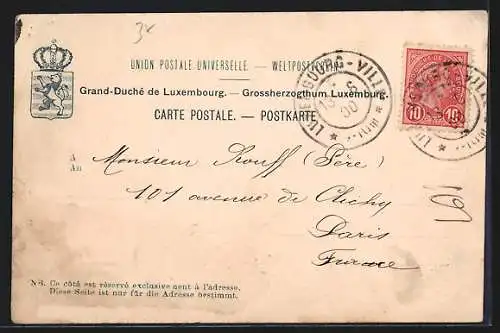 3x
UNION POSTALE UNIVERSELLE. — WELTPOSTVEREIN
Grand-Duché de Luxembourg. — Grossherzogthum Luxemburg.
CARTE POSTALE. — POSTKARTE
LUXEMBOURG - VILLE
10 10
A
An
Monsieur Rouff (Père)
101 avenue de Clichy
Paris
France
NB. Ce côté est réservé exclusivement à l'adresse.
Diese Seite ist nur für die Adresse bestimmt.